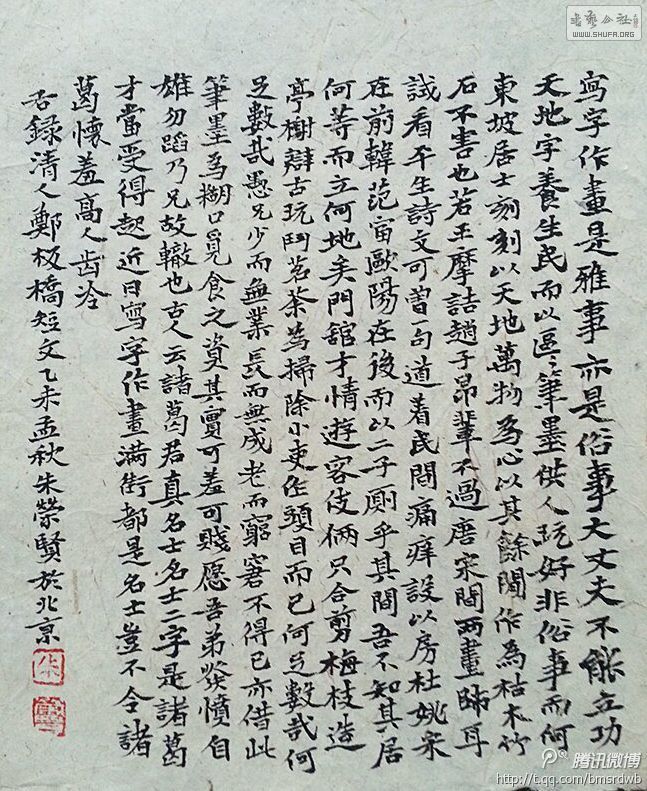 寫字作畫是雅事亦是俗事大丈夫不能立功
天地字養生民而以區〻筆墨供人玩好非俗事而何
東坡居士刻刻以天地萬物為心以其餘閒作為枯木竹
石不害也若王摩詰趙子昂輩不過唐宋間兩畫師耳
試看平生詩文可曾一句道着民間痛痒設以房杜姚宋
在前韓范富歐陽在後而以二子厠乎其間吾不知其居
何等而立何地矣門館才情遊客伎倆只合剪梅枝造
亭榭辯古玩鬥茗茶為掃除小吏作頭目而已何足數哉何
足數哉愚兄少而無業長而無成老而窮窘不得已亦借此
筆墨為糊口覓食之資其實可羞可賤愿吾弟發憤自
雄勿蹈乃兄故轍也古人云諸葛君真名士名士二字是諸葛
才當受得起近日寫字作畫滿街都是名士豈不令諸
葛懷羞高人齒冷
右錄清人鄭板橋短文乙未孟秋朱榮賢於北京
朱
書藝公社
WWW.SHUFA.ORG
腾讯微博
http://t.qq.com/bmsrdwb